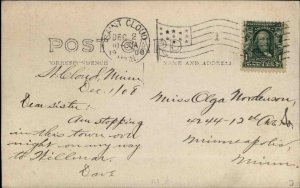 SAINT CLOUD
DEC 2
POST CARD
CORRESPONDENCE
NAME AND ADDRESS
St. Cloud, Minn
Dec. 1/08
Dear sister:
Am stopping
in this town over
night on my way
to Willmar.
Miss Olga Norderson
4244-12th Av. So.
Minneapolis,
Minn.